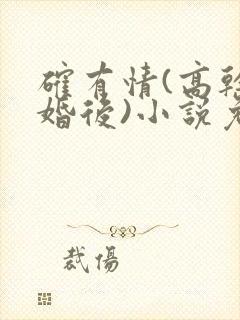 確有情(高幹
婚後)小說
裁傷